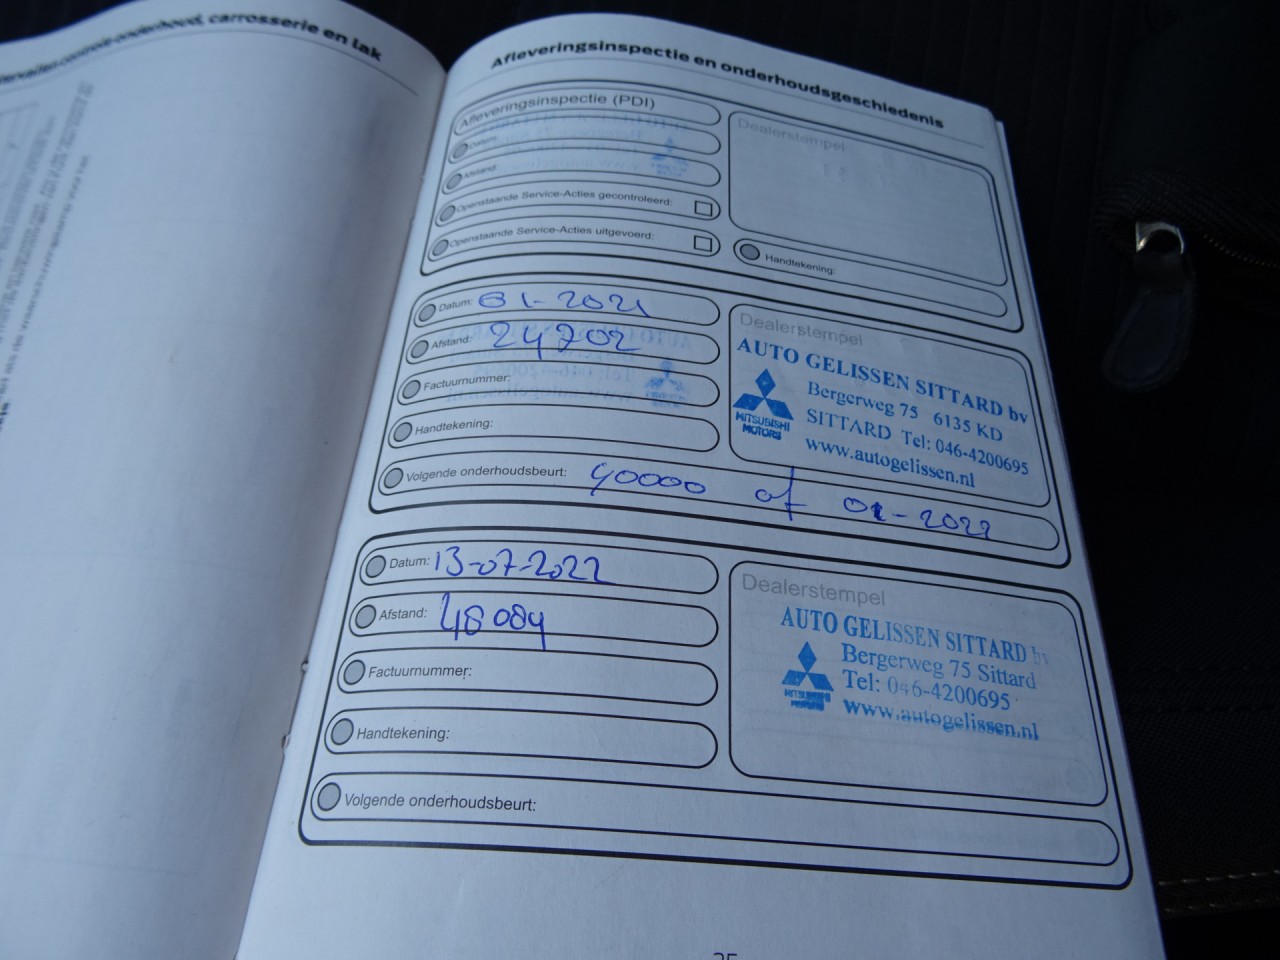 carrosserie en lak
Afleveringsinspectie en onderhoudsgeschiedenis
Afleveringsinspectie (PDI)
Datum:
Afstand:
Openstaande Service-Acties gecontroleerd:
Openstaande Service-Acties uitgevoerd:
Dealerstempel
Handtekening:
Datum: 01-2021
Afstand: 24702
Factuurnummer:
Handtekening:
Volgende onderhoudsbeurt: 40000 of 01-2022
Dealerstempel
AUTO GELISSEN SITTARD bv
Bergerweg 75 6135 KD
SITTARD Tel: 046-4200695
www.autogelissen.nl
MITSUBISHI
MOTORS
Datum: 13-07-2022
Afstand: 48084
Factuurnummer:
Handtekening:
Volgende onderhoudsbeurt:
Dealerstempel
AUTO GELISSEN SITTARD bv
Bergerweg 75 Sittard
Tel: 046-4200695
www.autogelissen.nl
MITSUBISHI
MOTORS